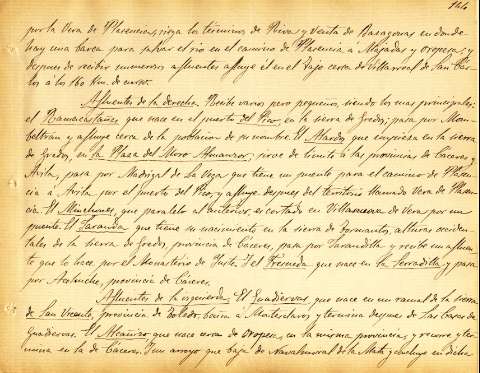 144
por la Vera de Plasencia, riega los términos de Riva y Venta de Bazagonas en donde
hay una barca para salvar el rio en el camino de Plasencia á Almadas y Oropesa y
despues de recibir numerosos afluentes afluye él en el Tajo cerca de Villarreal de San Car-
los á los 160 km. de curso.
Afluentes de la derecha. Recibe varios pero pequeños, siendo los mas principales:
el Ramacastañas que nace en el puerto del Pico, en la sierra de Gredos; pasa por Mom-
beltran y afluye cerca de la poblacion de su nombre. El Alardos, que empieza en la sierra
de Gredos, en la Plaza del Moro Almanzor, sirve de límite á las provincias de Cáceres y
Avila, pasa por Madrigal de la Vera que tiene un puente para el camino de Plasen-
cia á Avila por el puerto del Pico, y afluye despues del territorio llamado Vera de Plasen-
cia. El Minchones, que paralelo al anterior, es cortado en Villanueva de Vera por un
puente. El Jaranda que tiene su nacimiento en la sierra de alturas occiden-
tales de la sierra de Gredos, provincia de Cáceres, pasa por Jarandilla y recibe un afluen-
te que lo hace por el Monasterio de Yuste. Y el Fresneda que nace en la Serradilla y pasa
por provincia de Cáceres.
Afluentes de la izquierda. El Guadiervas, que nace en un ramal de la sierra
de San Vicente, provincia de Toledo, baña á Montesclaros y termina despues de Las Casas de
Guadiervas. El Alcañizo que nace cerca de Oropesa, en la misma provincia, y recorre y ter-
mina en la de Cáceres. Y un arroyo que baja de Navalmoral de la Mata y concluye en dicha